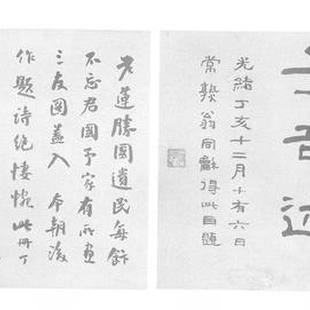 光緒丁亥十二月十有六日
常熟翁同龢得此自題
老蓮勝國遺民每飯
不忘君國予家有所畫
三友圖蓋入本朝後
作題詩絕悽惋此冊丁